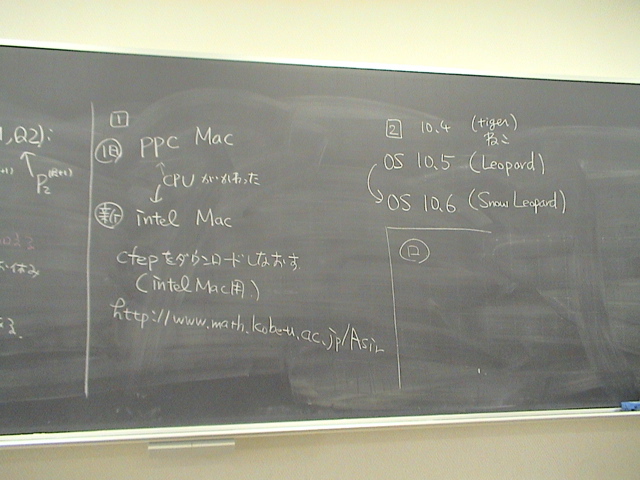 ,Q2):
1
旧 ppc Mac
CPUがかわった
新 intel Mac
cfepをダウンロードしなおす
(intel Mac用)
http://www.math.kobe-u.ac.jp/Asir
2 10.4 (tiger)
OS 10.5 (Leopard)
OS 10.6 (Snow Leopard)